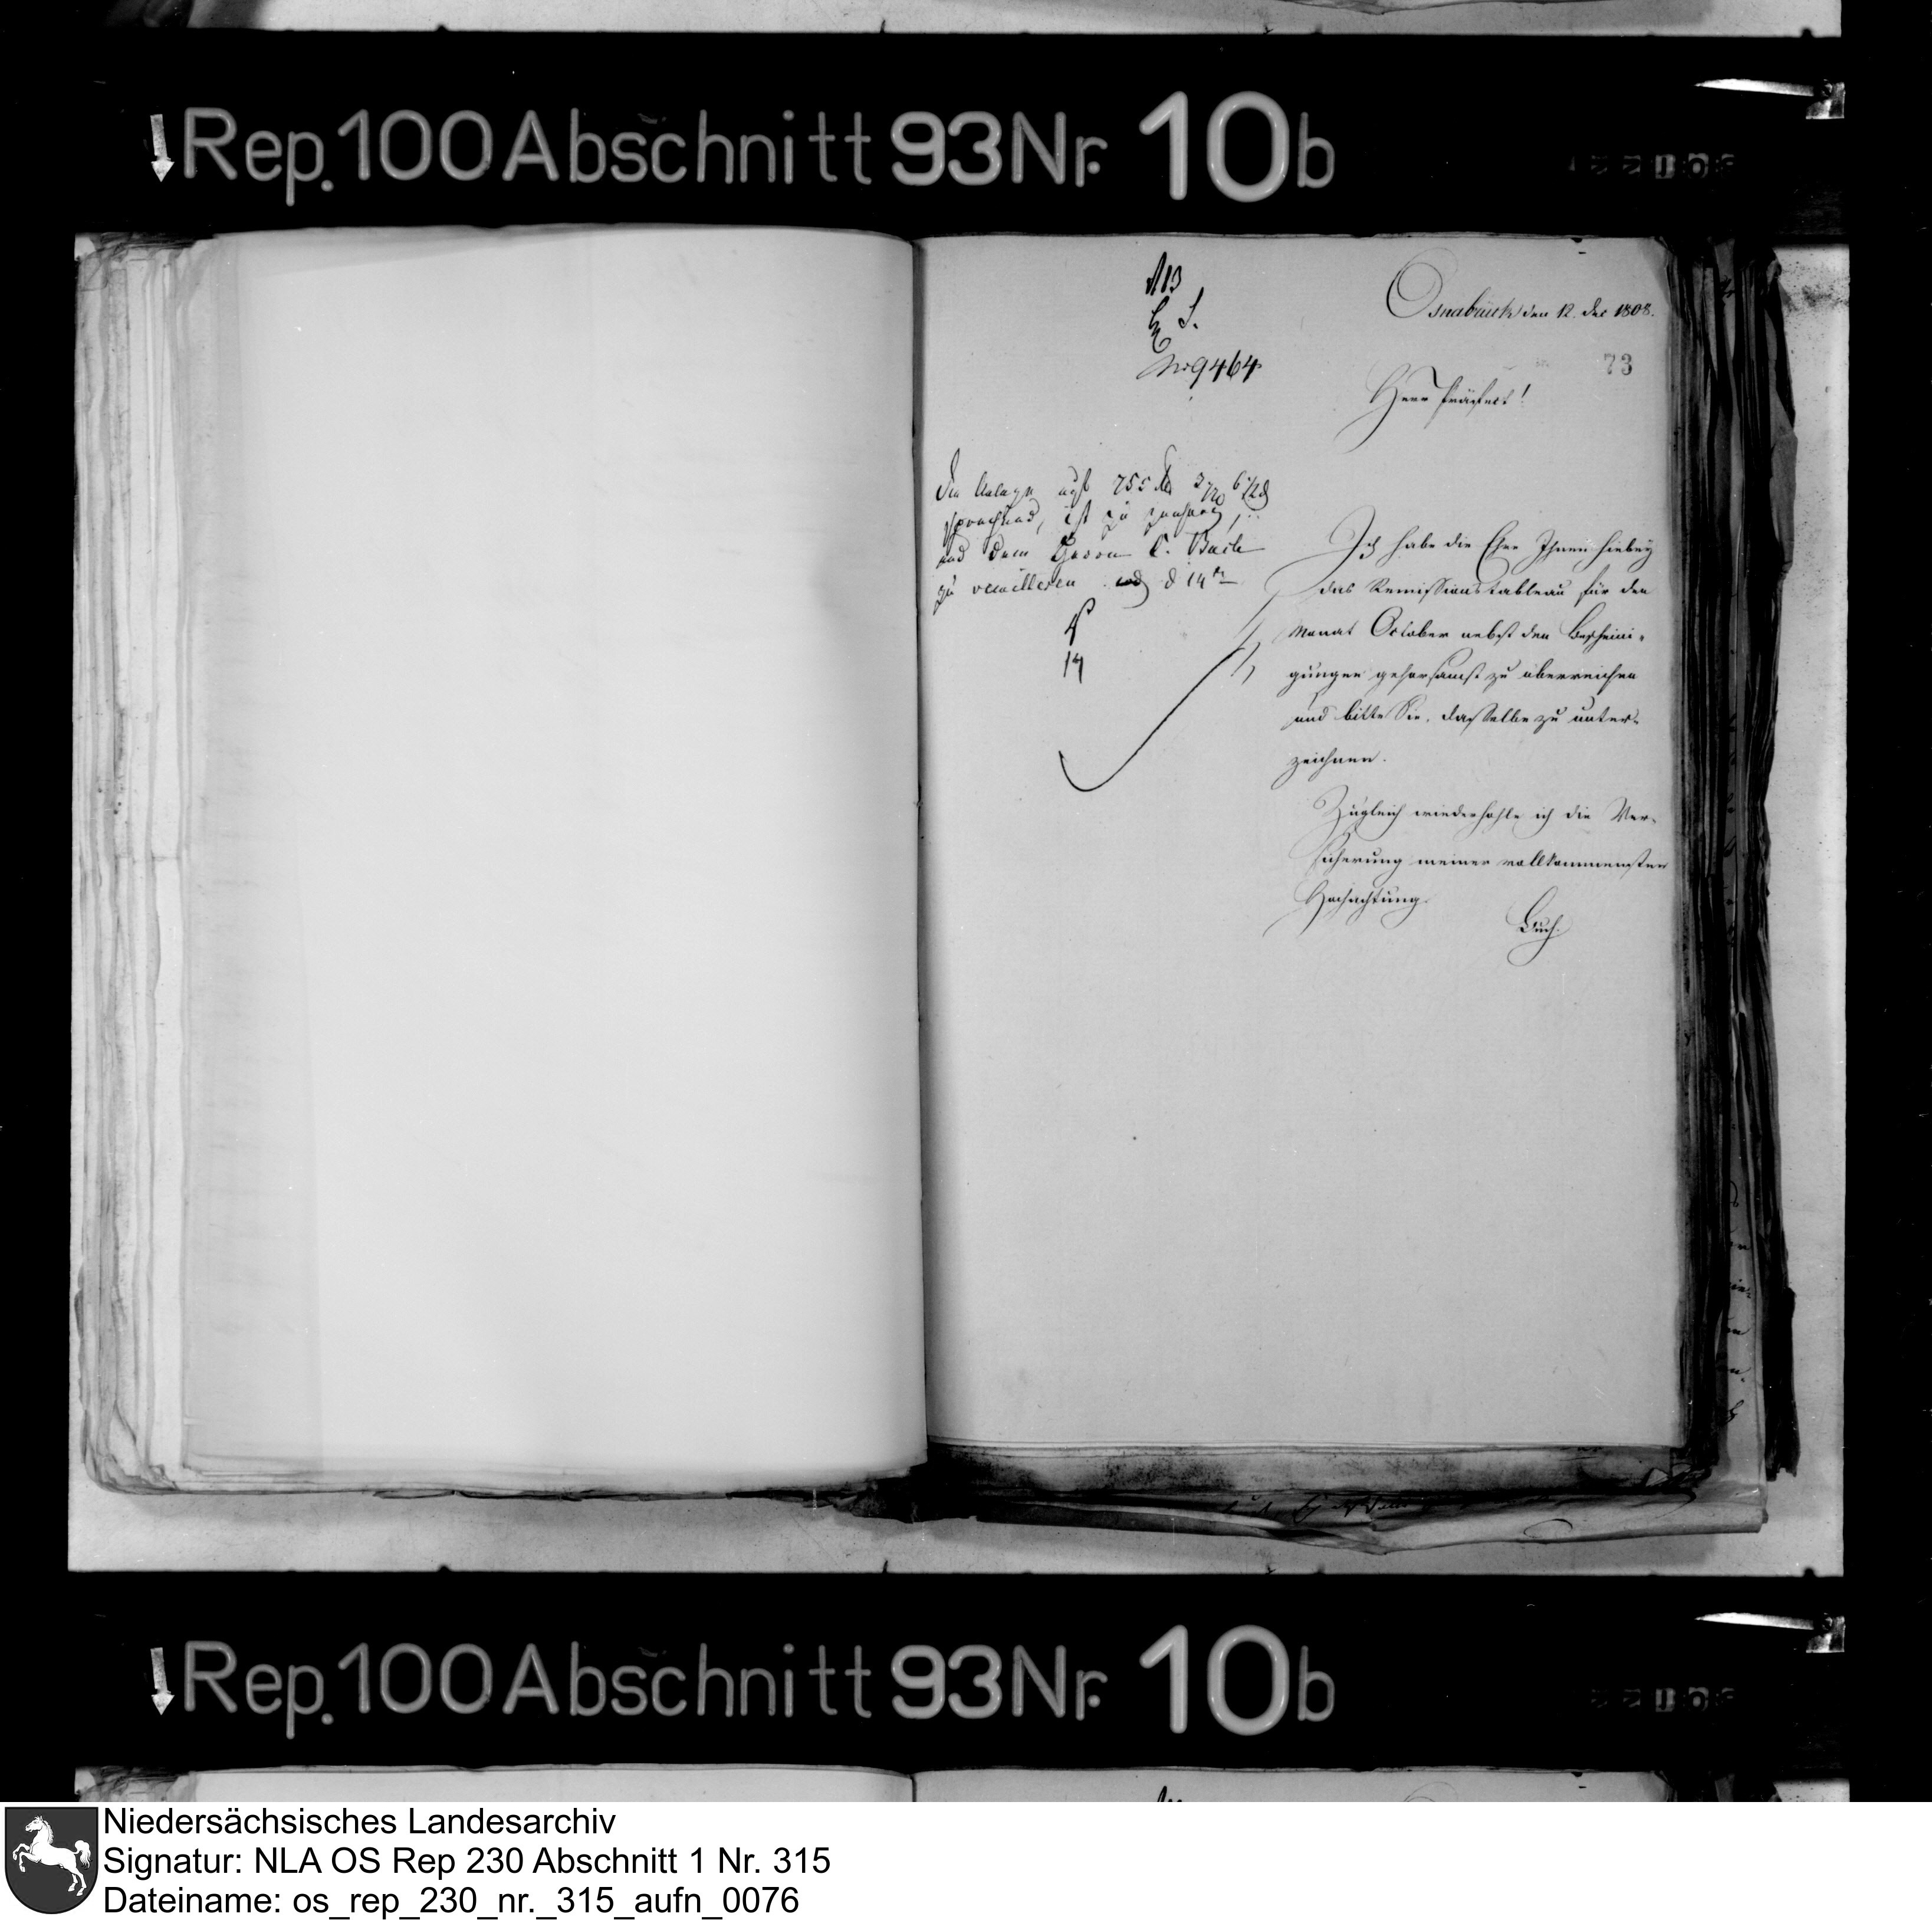 Rep. 100 Abschnitt 93 Nr. 10b
Osnabrück den 12. Dec 1808.
73
No 9464
Herr Präfect!
Die Anlage 755
ist zu
und dem Herrn Buch
zu den 14
14
Ich habe die Ehre Ihnen hiebey
das Remissionstableau für den
Monat October nebst den Bescheini-
gungen gehorsamst zu überreichen
und bitte Sie, dasselbe zu unter-
zeichnen.
Zugleich wiederhohle ich die Ver-
sicherung meiner vollkommensten
Hochachtung.
Buch.
Rep. 100 Abschnitt 93 Nr. 10b
Niedersächsisches Landesarchiv
Signatur: NLA OS Rep 230 Abschnitt 1 Nr. 315
Dateiname: os_rep_230_nr._315_aufn_0076